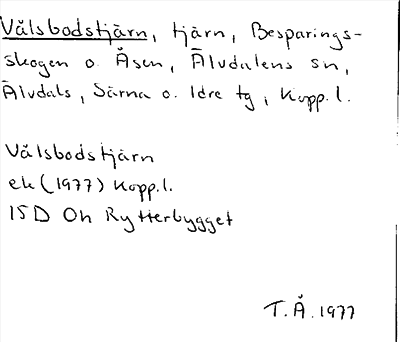 Vålsbodstjärn, tjärn, Besparings-
skogen o. Åsen, Älvdalens sn,
Älvdals, Särna o. Idre tg, Kopp.l.
Vålsbodstjärn
ek (1977) Kopp.l.
15D Oh Rytterbygget
T.Å. 1977